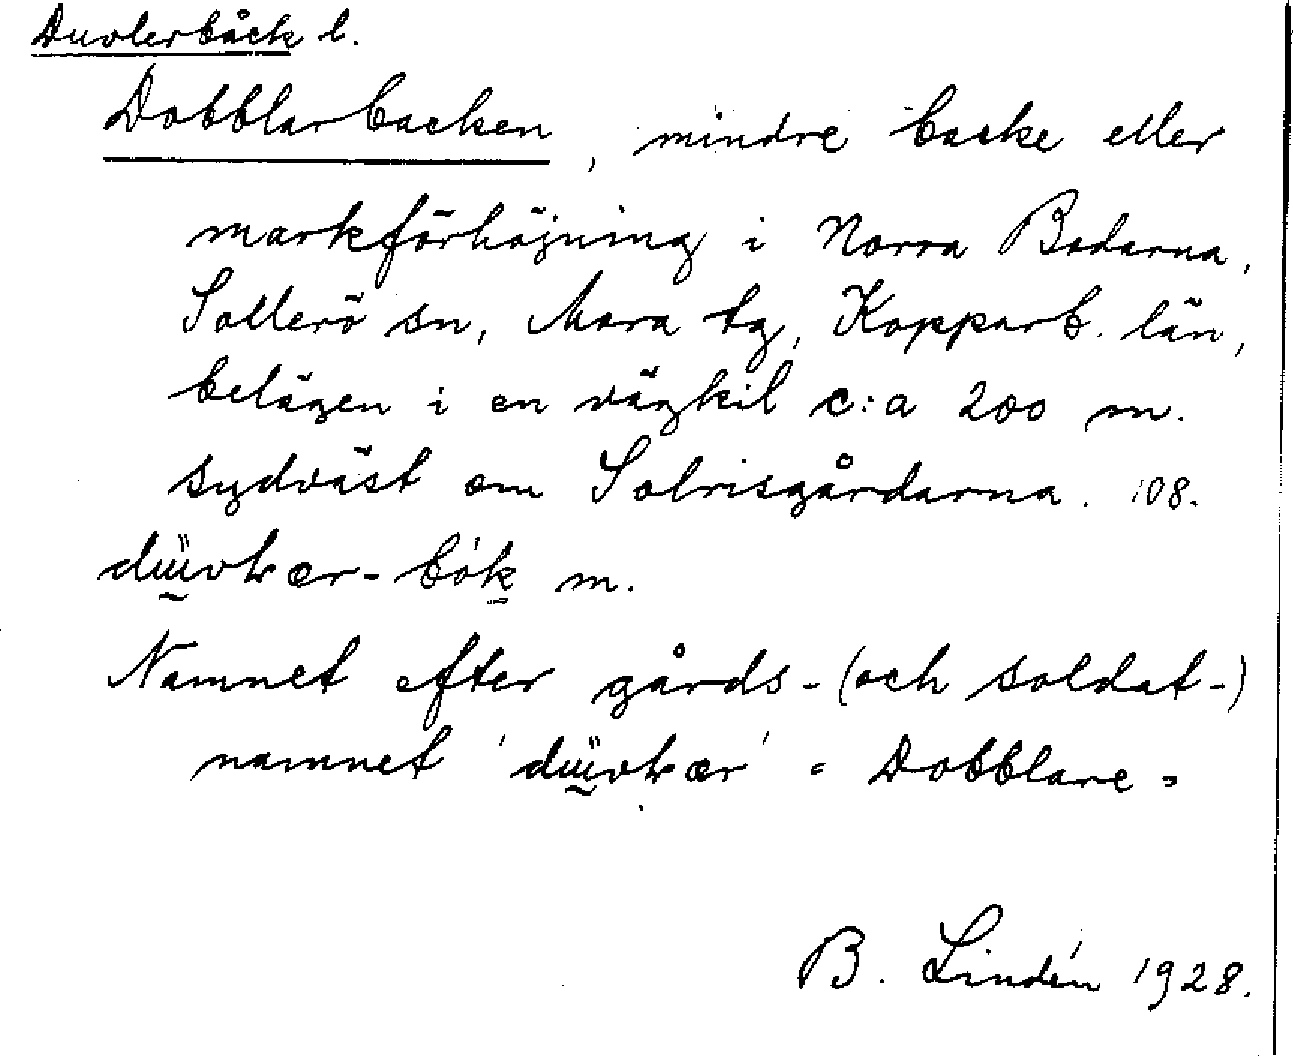 Duvlerbåck l.
Dobblarbacken, mindre backe eller
markförhöjning i Norra Bodarna,
Sollerö sn, Mora tg, Kopparb. län,
belägen i en vägkil c:a 200 m.
sydväst om Solrisgårdarna. 108.
m.
Namnet efter gårds-(och soldat-)
namnet = Dobblare =
B. Lindén 1928.